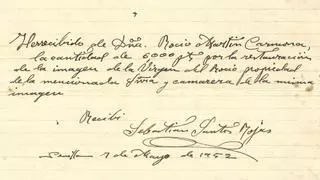 He recibido de Dña. Rocio Martín Carmona,
la cantidad de 6000 pts por la restauración
de la imagen de la Virgen del Rocio propiedad
de la mencionada Sra y camarera de la misma
imagen
Recibi
Sebastian Santos Rojas
Sevilla 7 de Mayo de 1952